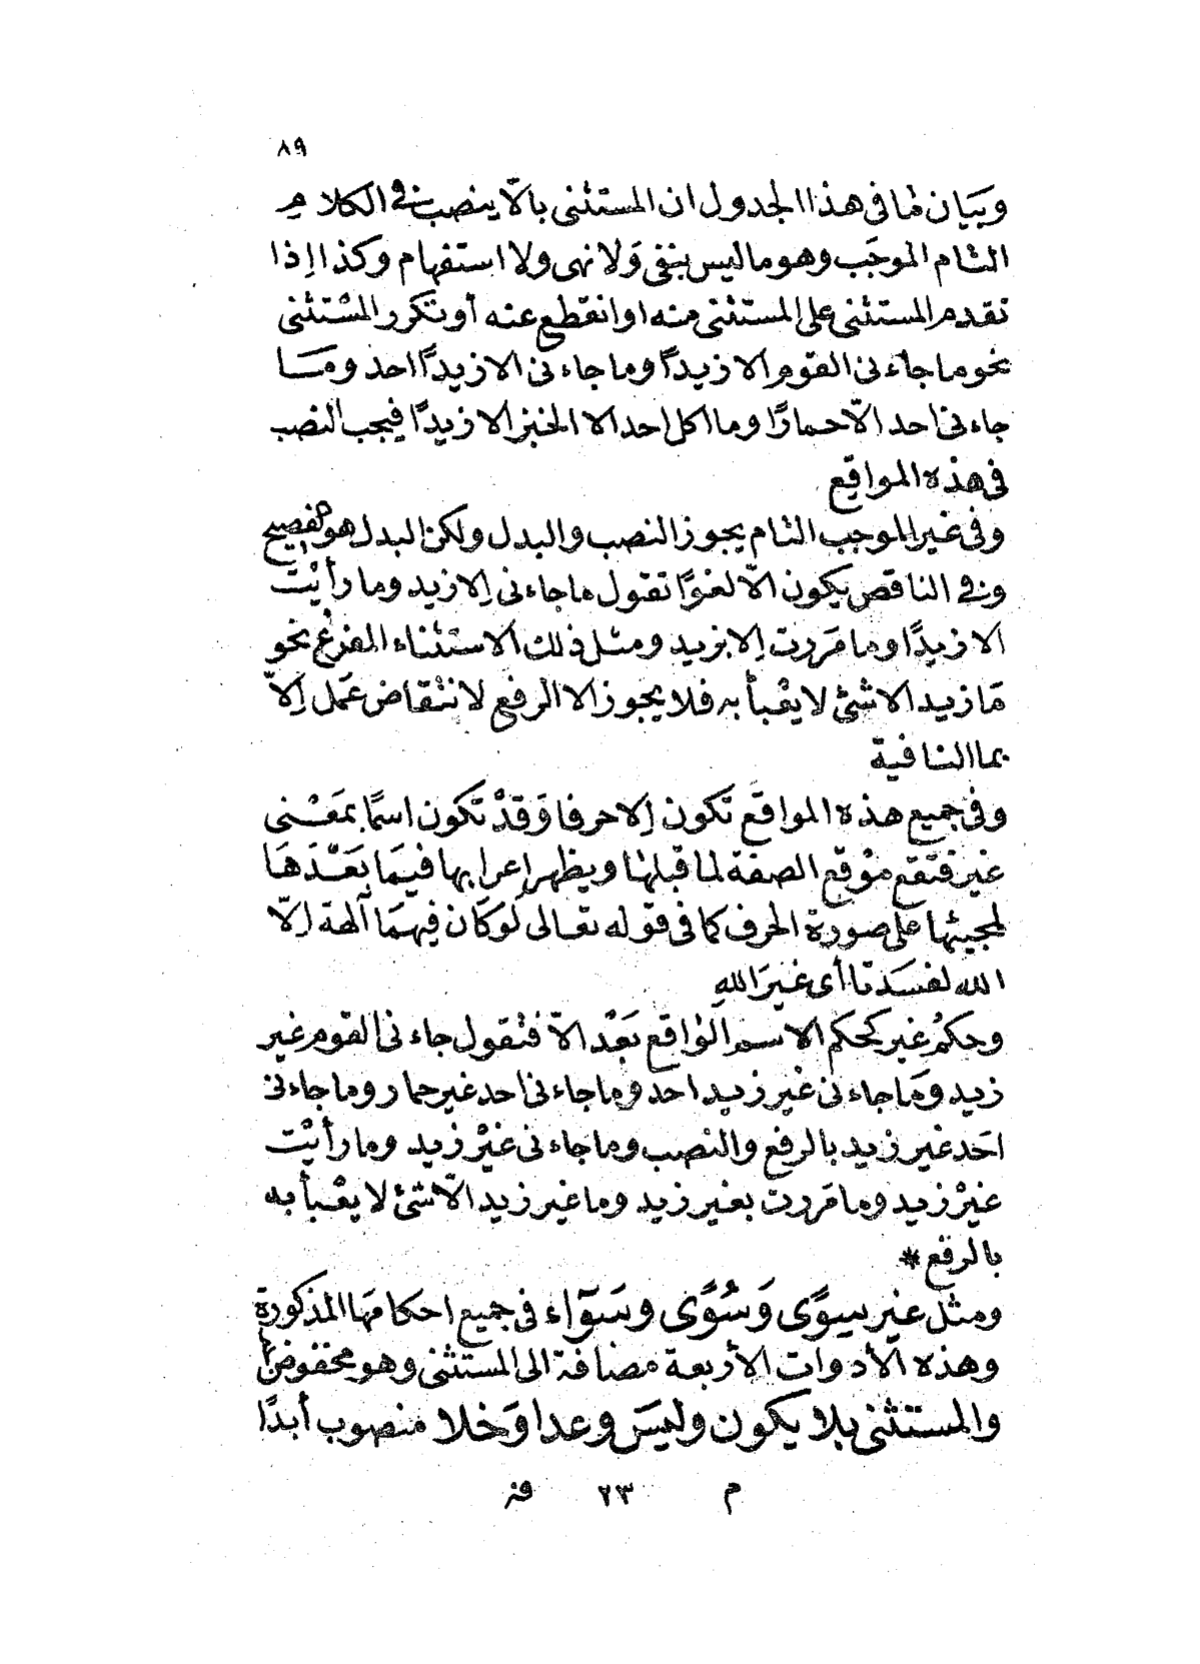 ٨٩
وبَيَان لما فى هذا الجدول ان المستثنى بالاّ ينصب فى الكلام
التام الموجَب وهو ما ليس بنفى وَلا نهى ولا استفهام وكذا اِذا
تقدم المستثنى على المستثنى منه او انقطع عنه أو تكرر المسْتثنى
نحو ما جاء نى القوم الا زيداً وما جاء نى الا زيداً احد ومَا
جاء نى احد الاّ حمارًا وما اكل احد الا الخبز الا زيدًا فيجب النصب
فى هذه المواقع
وفى غير الموجب التام يجوز النصب والبدل ولكن البدل هو الفصيح
وفى الناقص يكون الاّ لغوًا تقول ما جاء نى اِلا زيد وما رأيْت
الا زيدًا وما مَررت اِلا بزيد ومثل ذلك الاستثناء المفرغ نحو
مَا زيد الا شئ لا يعْبأ به فلا يجوز الا الرفع لانتْقاض عَمل اِلاّ
بما النافية
وفى جميع هذه المواقع تَكون اِلا حرفا وَقدْ تَكون اسمًا بمَعْنى
غير فتقع موْقع الصفة لما قبلها ويظهر اِعرابها فيمَا بَعْدَهَا
لمجيئها على صورة الحرف كما فى قوله تعالى لَوكَان فِيهمَا آلهة اِلاّ
الله لفسَدتا أى غيرَ اللهِ
وحكمُ غير كحكم الاسم الواقع بَعْد الاّ فتْقول جاء نى القوم غير
زيد وَمَا جاء نى غير زيد احد وما جاء نى احد غير حمار وما جاء نى
احَد غير زيد بالرفع والنصب وما جاء نى غيْر زيد وما رأيْت
غيْر زيد وما مَررت بغير زيد وما غير زيد الاّ شئ لا يعْبأ به
بالرفع *
ومثل غير سِوًى وَسُوًى وسَوَآء فى جميع احكامهَا المذكورة
وهذه الأدوات الأربعة مضافة الى المستثنى وهو مخفوض بها
والمستثنى بلا يكون وليسَ وعدا وَخلا منصوب أبدًا
م ٢٣ فر